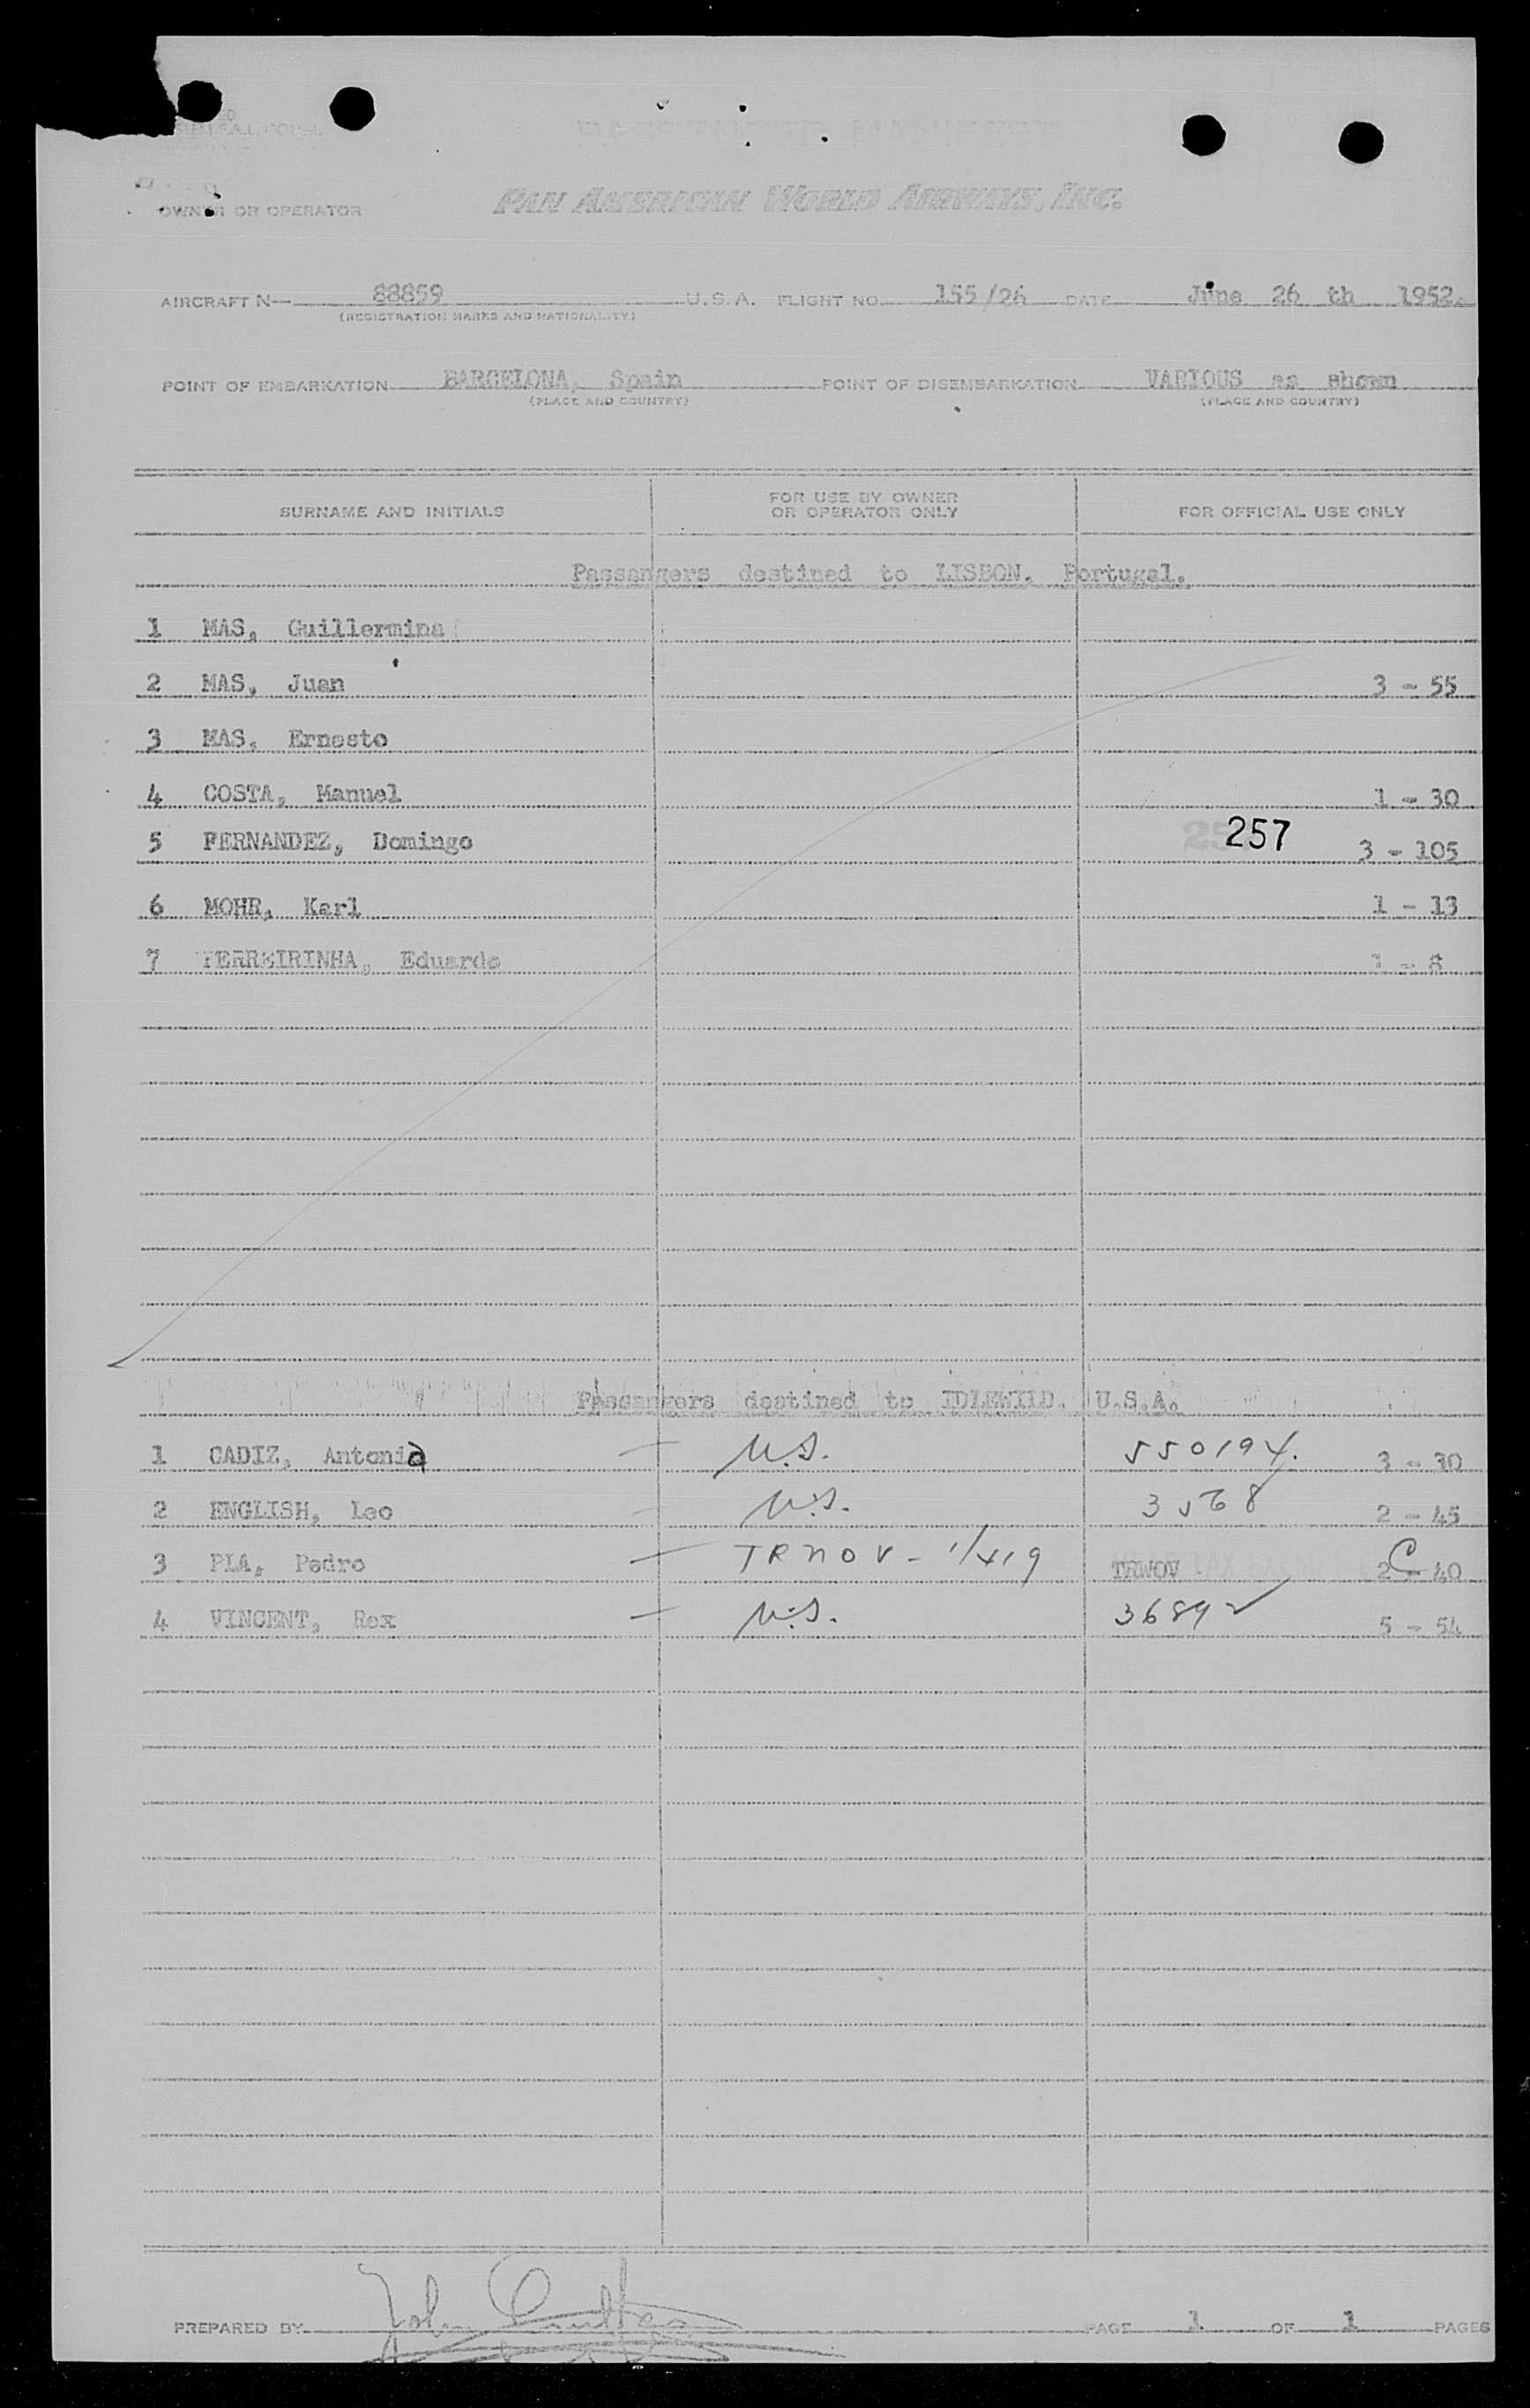 PASSENGER MANIFEST
OWNER OR OPERATOR PAN AMERICAN WORLD AIRWAYS, INC.
AIRCRAFT N— 88859 U.S.A. FLIGHT NO. 155/26 DATE June 26 th 1952.
(REGISTRATION MARKS AND NATIONALITY)
POINT OF EMBARKATION BARCELONA, Spain POINT OF DISEMBARKATION VARIOUS as shown
(PLACE AND COUNTRY) (PLACE AND COUNTRY)
SURNAME AND INITIALS FOR USE BY OWNER OR OPERATOR ONLY FOR OFFICIAL USE ONLY
Passengers destined to LISBON, Portugal.
1 MAS, Guillermina
2 MAS, Juan 3 - 55
3 MAS, Ernesto
4 COSTA, Manuel 1 - 30
5 FERNANDEZ, Domingo 257 3 - 105
6 MOHR, Karl 1 - 13
7 FERREIRINHA, Eduardo 1 - 8
Passengers destined to IDLEWILD, U.S.A.
1 CADIZ, Antonia — U.S. 550194. 3 - 30
2 ENGLISH, Leo — U.S. 3568 2 - 45
3 PLA, Pedro — TRWOV - 1/419 TRWOV C 2 - 40
4 VINCENT, Rex — U.S. 3689 5 - 54
PREPARED BY John PAGE 1 OF 1 PAGES